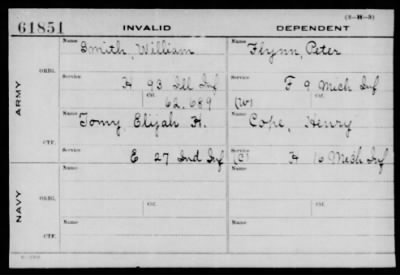 (3-H-3)
61851 INVALID DEPENDENT
Name Smith, William Name Flynn, Peter
ORIG. Service H 93 Ill Inf Service F 9 Mich Inf
Ctf. 62,689 (W) Ctf.
ARMY
Name Tomy, Elijah H. Name Cope, Henry
CTF. Service E 27 Ind Inf Service (C) H 16 Mich Inf
Name Name
ORIG.
Ctf. Ctf.
NAVY
Name Name
CTF.